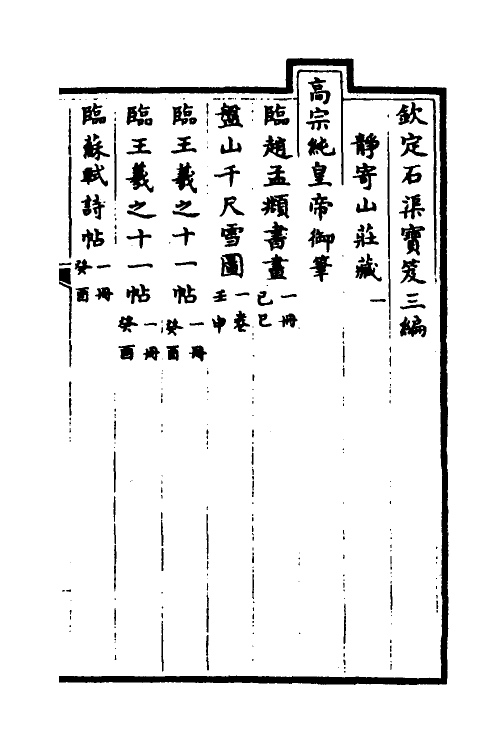 欽定石渠寶笈三編
靜寄山莊藏一
高宗純皇帝御筆
臨趙孟頫書畫一冊己巳
盤山千尺雪圖一卷壬申
臨王羲之十一帖一冊癸酉
臨王羲之十一帖一冊癸酉
臨蘇軾詩帖一冊癸酉